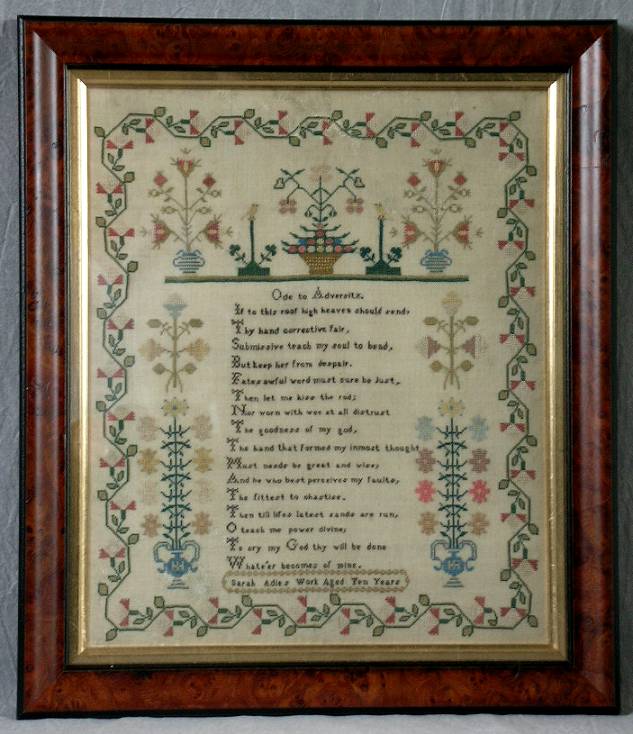 Ode to Adversity.
If to this roof high heaven should send,
Thy hand corrective fair,
Submissive teach my soul to bend,
But keep her from despair.
Fates awful word must sure be Just,
Then let me kiss the rod;
Nor worn with woe at all distrust
The goodness of my god,
The hand that formed my inmost thought
Must needs be great and wise;
And he who best perceives my faults,
The fittest to chastise.
Then till lifes latest sands are run,
O teach me power divine;
To cry my God thy will be done
Whate'er becomes of mine.
Sarah Adies Work Aged Ten Years